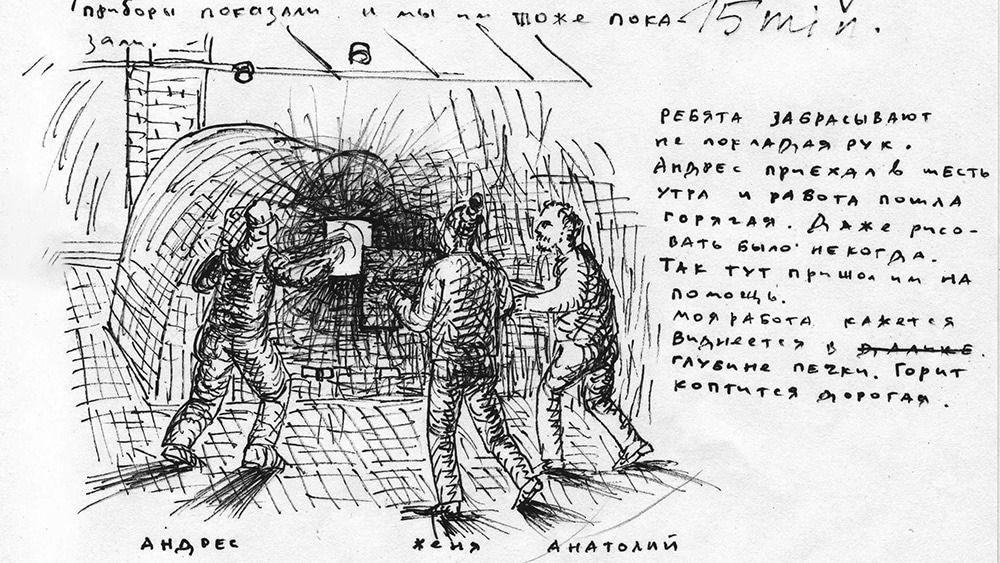 приборы показали и мы им тоже пока-
зали.
15 min.
РЕБЯТА ЗАБРАСЫВАЮТ
НЕ ПОКЛАДАЯ РУК.
АНДРЕС ПРИЕХАЛ В ШЕСТЬ
УТРА И РАБОТА ПОШЛА
ГОРЯЧАЯ. ДАЖЕ РИСО-
ВАТЬ БЫЛО НЕКОГДА.
ТАК ТУТ ПРИШОЛ ИМ НА
ПОМОЩЬ.
МОЯ РАБОТА КАЖЕТСЯ
ВИДНЕЕТСЯ В
ГЛУБИНЕ ПЕЧКИ. ГОРИТ
КОПТИТСЯ ДОРОГАЯ.
АНДРЕС ЖЕНЯ АНАТОЛИЙ